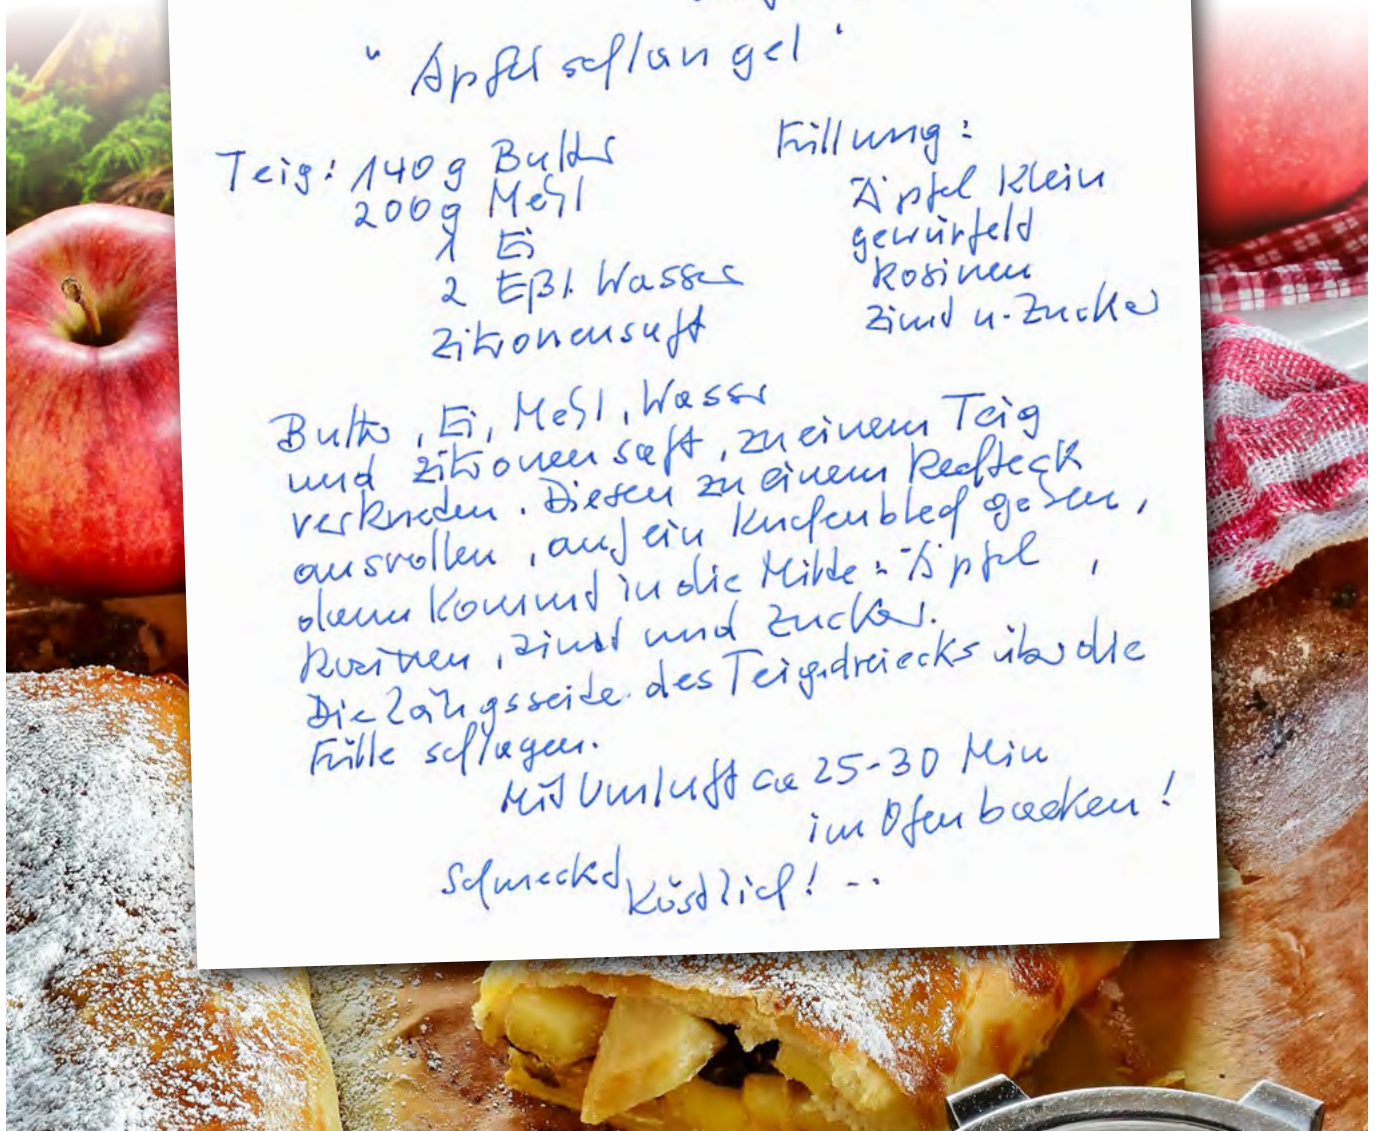 "Apfelschlangel"
Teig: 140g Butter
200g Mehl
1 Ei
2 Eßl. Wasser
Zitronensaft
Füllung:
Äpfel klein
gewürfeld
Rosinen
Zimd u. Zucker
Butter, Ei, Mehl, Wasser
und Zitronensaft, zu einem Teig
verkneden. Diesen zu einem Rechteck
ausrollen, auf ein Kuchenblech geben,
dann kommd in die Mitte: Äpfel,
Rosinen, Zimd und Zucker.
Die Längsseite des Teigdreiecks über die
Fülle schlagen.
Mit Umluft ca 25-30 Min
im Ofen backen!
Schmeckd köstlich! --